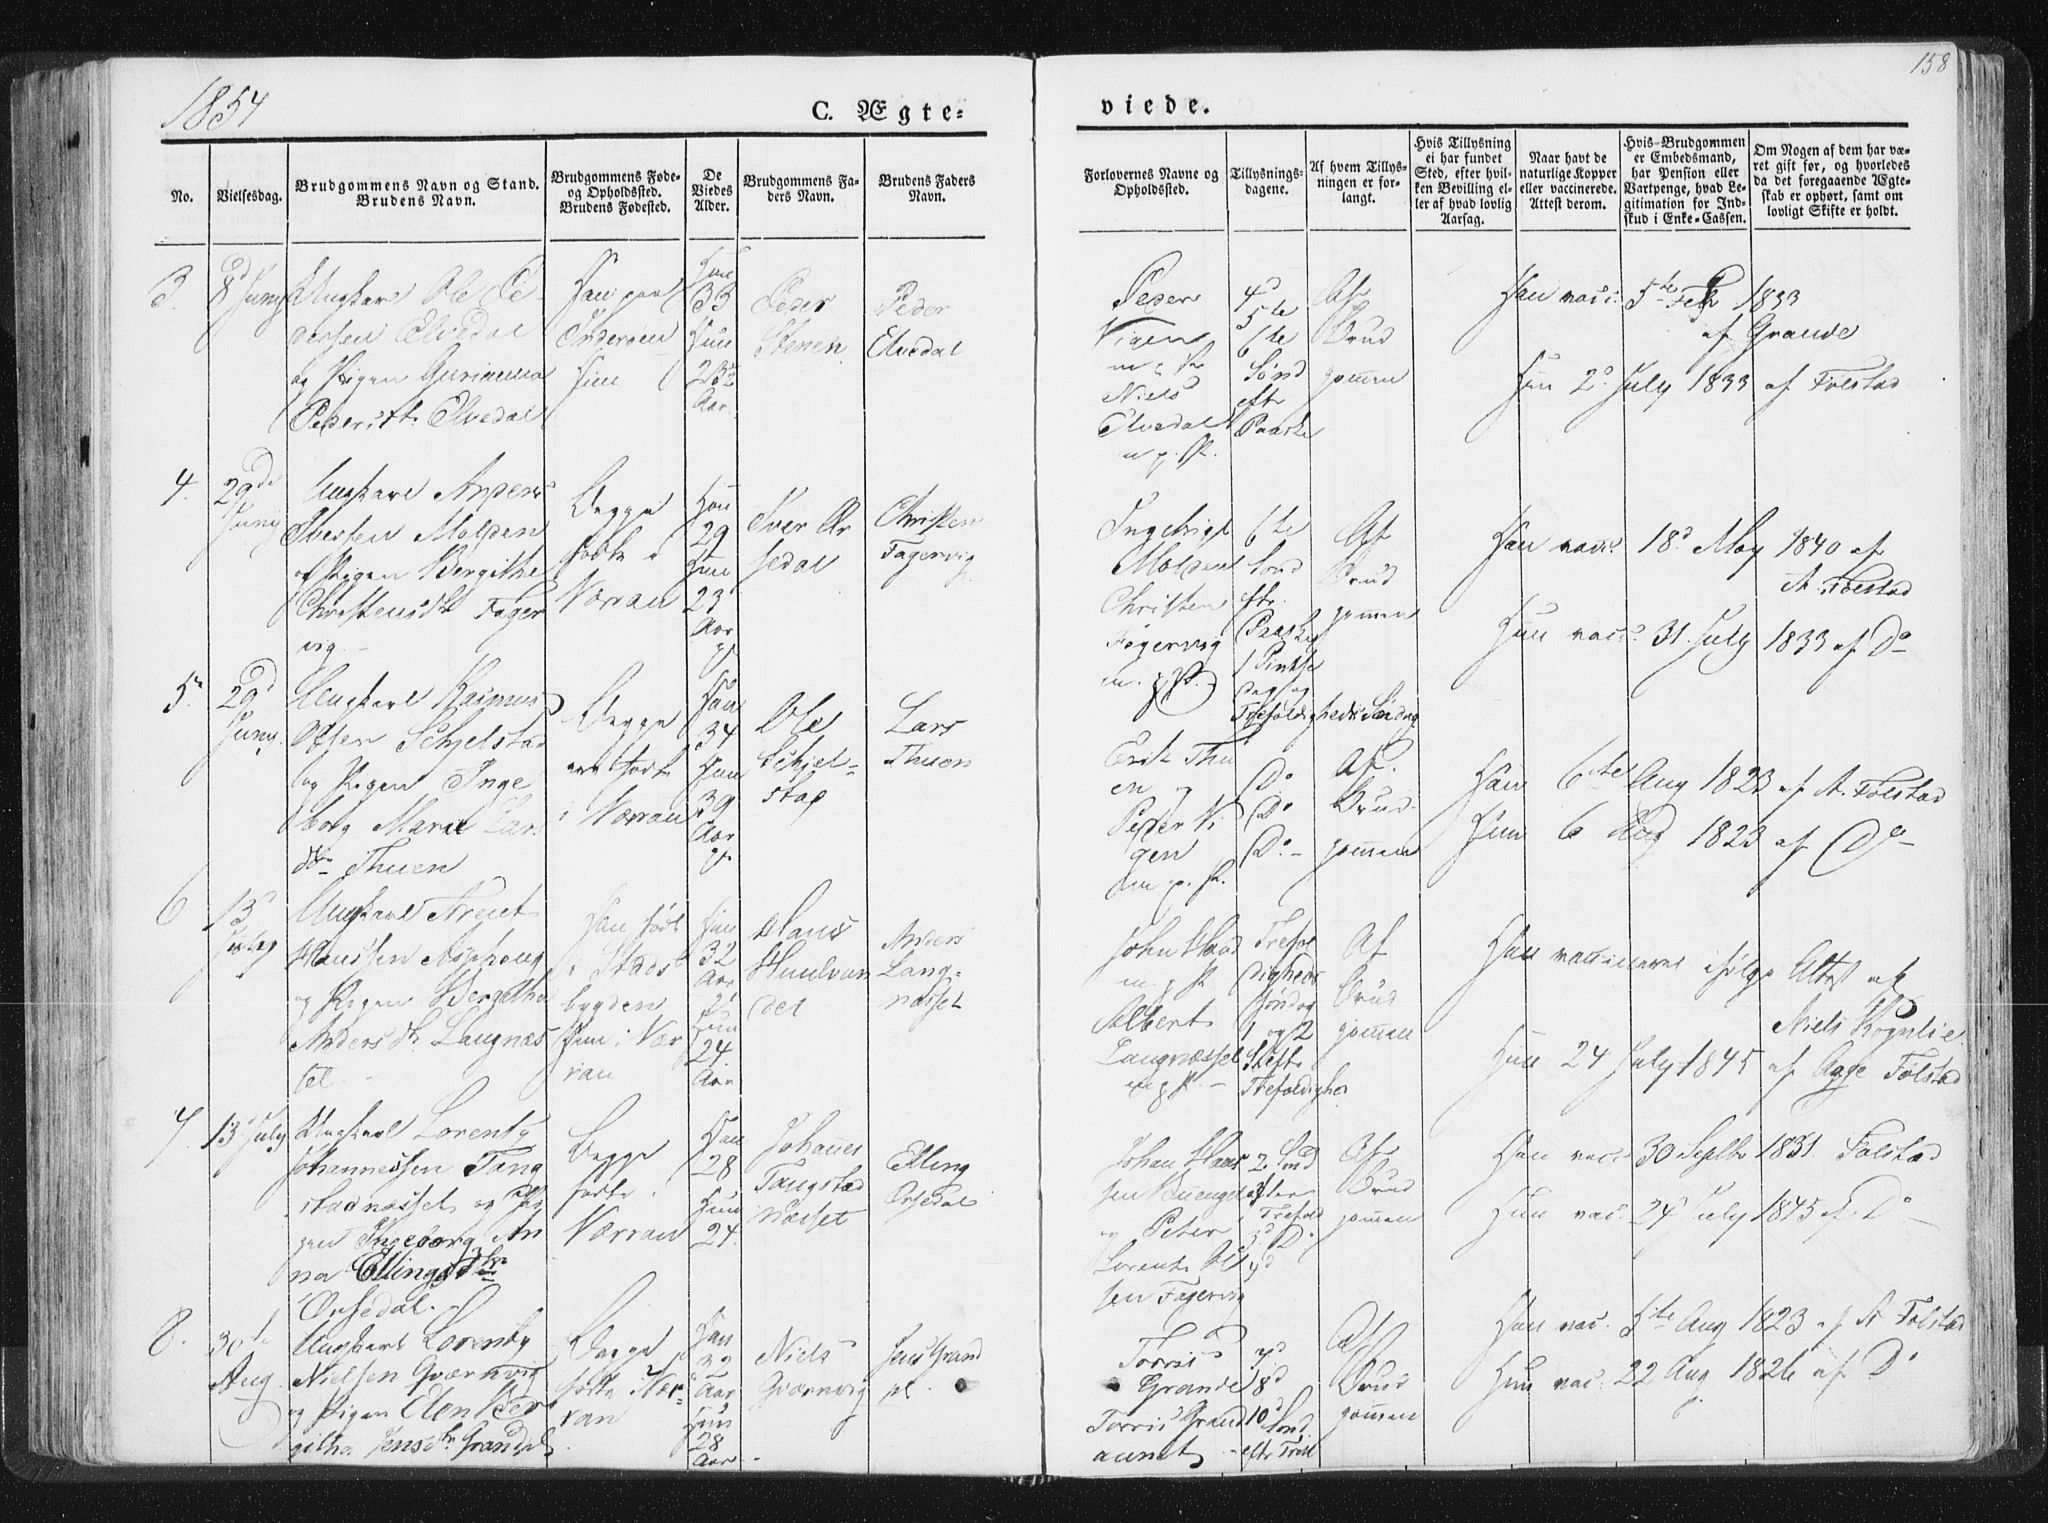 1854
C. Ægte-
viede.
158
No.
Vielsesdag.
Brudgommens Navn og Stand.
Brudens Navn.
Brudgommens Føde-
og Opholdssted.
Brudens Fødested.
De
Viedes
Alder.
Brudgommens Fa-
ders Navn.
Brudens Faders
Navn.
Forlovernes Navne og
Opholdssted.
Tillysnings-
dagene.
Af hvem Tillys-
ningen er for-
langt.
Hvis Tillysning
ei har fundet
Sted, efter hvil-
ken Bevilling el-
ler af hvad lovlig
Aarsag.
Naar havt de
naturlige Kopper
eller vaccinerede.
Attest derom.
Hvis Brudgommen
er Embedsmand,
har Pension eller
Vartpenge, hvad Le-
gitimation for Ind-
skud i Enke-Cassen.
Om Nogen af dem har væ-
ret gift før, og hvorledes
da det foregaaende Ægte-
skab er ophørt, samt om
lovligt Skifte er holdt.
3.
8d Juny
Ungkarl Ole Pe
dersen Elvedal
og Pigen
Pedersdtr Elvedal
Han paa
Inderøen
Hun
Han
33
Hun
23½
Aar
Peder
Stenen
Peder
Elvedal
Peder
Vigen
m. p. P.
Niels
Elvedal
m. p. P.
4d
5te
6te
Sønd
eftr
Paaske
Af
Brud
gommen
Han vacc. 5te Feb 1833
af Grande
Hun 2d July 1833 af Følstad
4.
29de
Juny
Ungkarl
Iversen Molden
og Pigen Bergithe
Christensdtr Fager
vig.
Begge
fødte i
Værran
Han
29
Hun
23
Aar
Iver Ar
sedal
Christen
Fagervig
Ingebrigt
Molden
Christen
Fagervig
m. p. P.
6te
Sønd
eftr.
Paaske
1 Pintse
dag og
Trefoldigheds Søndag
Af
Brud
gommen
Han vacc. 18d May 1840 af
A. Følstad
Hun vacc. 31. July 1833 af Do
5.
29d
Juny.
Ungkarl Rasmus
Olsen Schjelstad
og Pigen Inge
borg Maria Lars
dtr Thuen
Begge
ere fødte
i Værran
Han
34
Hun
39
Aar
Ole
Schjel-
stad
Lars
Thuen
Erik Thu
en og
Peder Vi
gen
m. p. P.
Do
Do
Do -
Af
Brud
gommen
Han 6te Aug 1823 af A. Følstad
Hun 6 Aug 1823 af Do
6
13d
July
Ungkarl Arent
Hanssen Asphoug
og Pigen Bergitha
Andersdtr Langnæs
set.
Han født
i Stads
bygden
Hun i Vær
ran
Han
32
Aar
Hun
24
Aar
Hans
Anders
Lang-
næsset
John
m. p. P
Albert
Langnæsset
m p P -
Trefol
digheds
Søndag
1 og 2
S efter
Trefoldighed
Af
Brud
gommen
Han vaccineret ifølge Attest af
Niels Rognlie
Hun 24 July 1845 af Aage Følstad
7.
13 July
Ungkarl Lorents
Johannessen Tang
stadnæsset og Pi
gen Ingeborg An
na Ellingsdtr
Orsedal.
Begge
fødte i
Værran
Han
28
Hun
24.
Johanes
Tangstad
næsset
Elling
Orsedal
Johan Hans
sen
og Peter
Lorents Ol
sen Fagervig
2. Sønd
efter
Trefold
3d Do
4d
Af
Brud
gommen
Han vacc. 30 Septbr 1831. Følstad
Hun vac. 24d July 1845 af Do
8.
30te
Aug
Ungkarl Lorents
Nielsen Qværnvig
og Pigen Elen Ber
githa Jensdtr Grandpl
Begge
fødte i Vær-
ran
Han
32
Aar
Hun
28
Aar
Niels
Qværnvig
Jens Grand
pl.
Torris
Grande
Torris Grand
aunet
7d
8d
10d Sønd
eftr Tref
Af
Brud
gommen
Han vac. 5te Aug 1823 af A Følstad
Hun vac. 22 Aug 1826 af Do